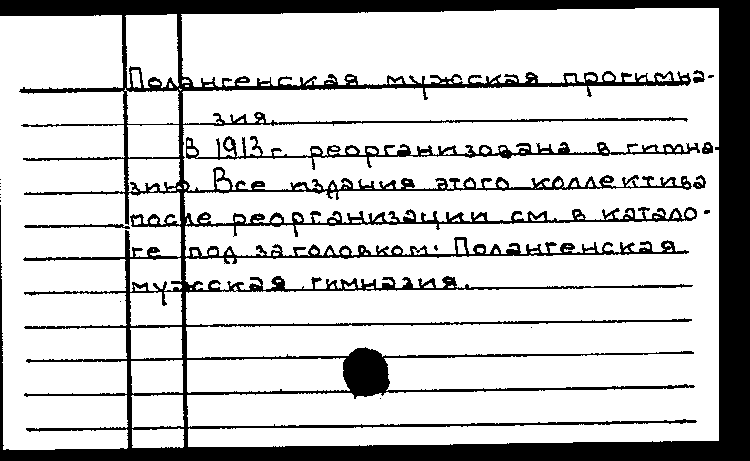 Полангенская мужская прогимна-
зия.
В 1913 г. реорганизована в гимна-
зию. Все издания этого коллектива
после реорганизации см. в катало-
ге под заголовком: Полангенская
мужская гимназия.